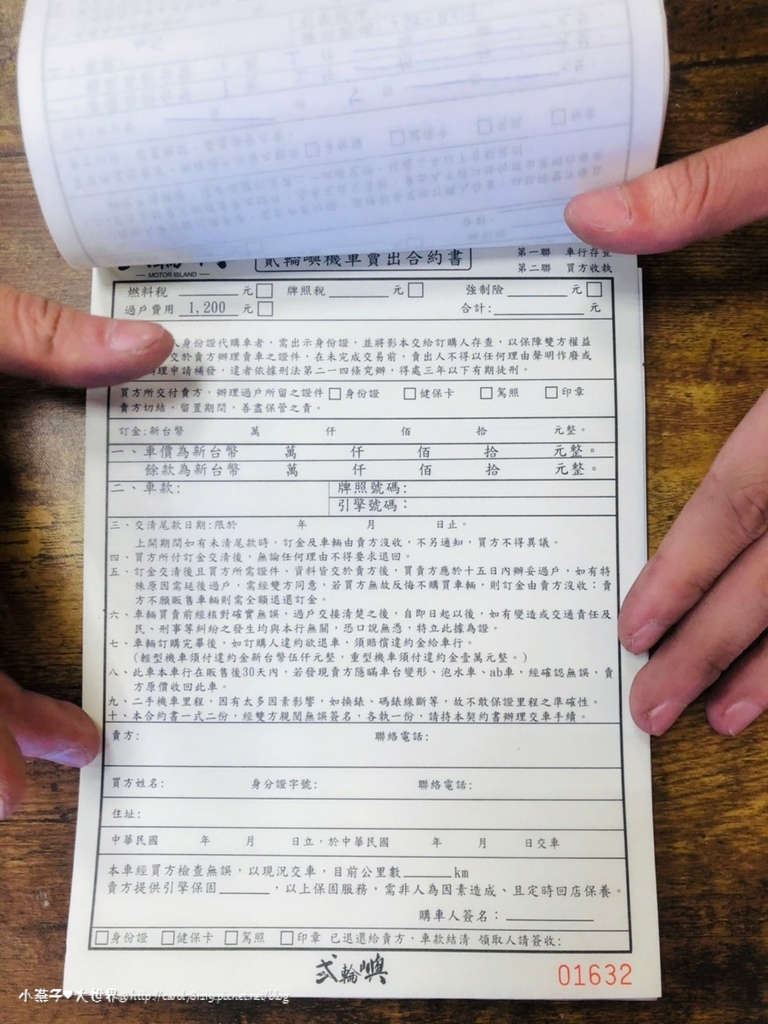 MOTOR ISLAND
貳輪嶼機車賣出合約書
第一聯 車行存查
第二聯 買方收執
燃料稅 元 牌照稅 元 強制險 元
過戶費用 1,200 元 合計: 元
身份證代購車者，需出示身份證，並將影本交給訂購人存查，以保障雙方權益
交於貴方辦理賣車之證件，在未完成交易前，賣出人不得以任何理由聲明作廢或
理申請補發，違者依據刑法第二一四條究辦，得處三年以下有期徒刑。
買方所交付賣方，辦理過戶所留之證件 身份證 健保卡 駕照 印章
賣方切結，留置期間，善盡保管之責。
訂金:新台幣 萬 仟 佰 拾 元整。
一、車價為新台幣 萬 仟 佰 拾 元整。
餘款為新台幣 萬 仟 佰 拾 元整。
二、車款: 牌照號碼:
引擎號碼:
三、交清尾款日期:限於 年 月 日止。
上開期間如有未清尾款時，訂金及車輛由賣方沒收，不另通知，買方不得異議。
四、買方所付訂金交清後，無論任何理由不得要求退回。
五、訂金交清後且買方所需證件、資料皆交於賣方後，買賣方應於十五日內辦妥過戶，如有特
殊原因需延後過戶，需經雙方同意，若買方無故反悔不購買車輛，則訂金由賣方沒收；賣
方不願販售車輛則需全額退還訂金。
六、車輛買賣前經核對確實無誤，過戶交接清楚之後，自即日起以後，如有變造或交通責任及
民、刑事等糾紛之發生均與本行無關，恐口說無憑，特立此據為證。
七、車輛訂購完畢後，如訂購人違約欲退車，須賠償違約金給車行。
(輕型機車須付違約金新台幣伍仟元整，重型機車須付違約金壹萬元整。)
八、此車本車行在販售後30天內，若發現賣方隱瞞車台變形、泡水車、ab車，經確認無誤，賣
方原價收回此車。
九、二手機車里程，因有太多因素影響，如換錶、碼錶線斷等，故不敢保證里程之準確性。
十、本合約書一式二份，經雙方親閱無誤簽名，各執一份，請持本契約書辦理交車手續。
賣方: 聯絡電話:
買方姓名: 身分證字號: 聯絡電話:
住址:
中華民國 年 月 日立，於中華民國 年 月 日交車
本車經買方檢查無誤，以現況交車，目前公里數 km
賣方提供引擎保固 ，以上保固服務，需非人為因素造成、且定時回店保養。
購車人簽名:
身份證 健保卡 駕照 印章 已退還給賣方，車款結清 領取人請簽收:
貳輪嶼
01632
小燕子♥大世界@http://